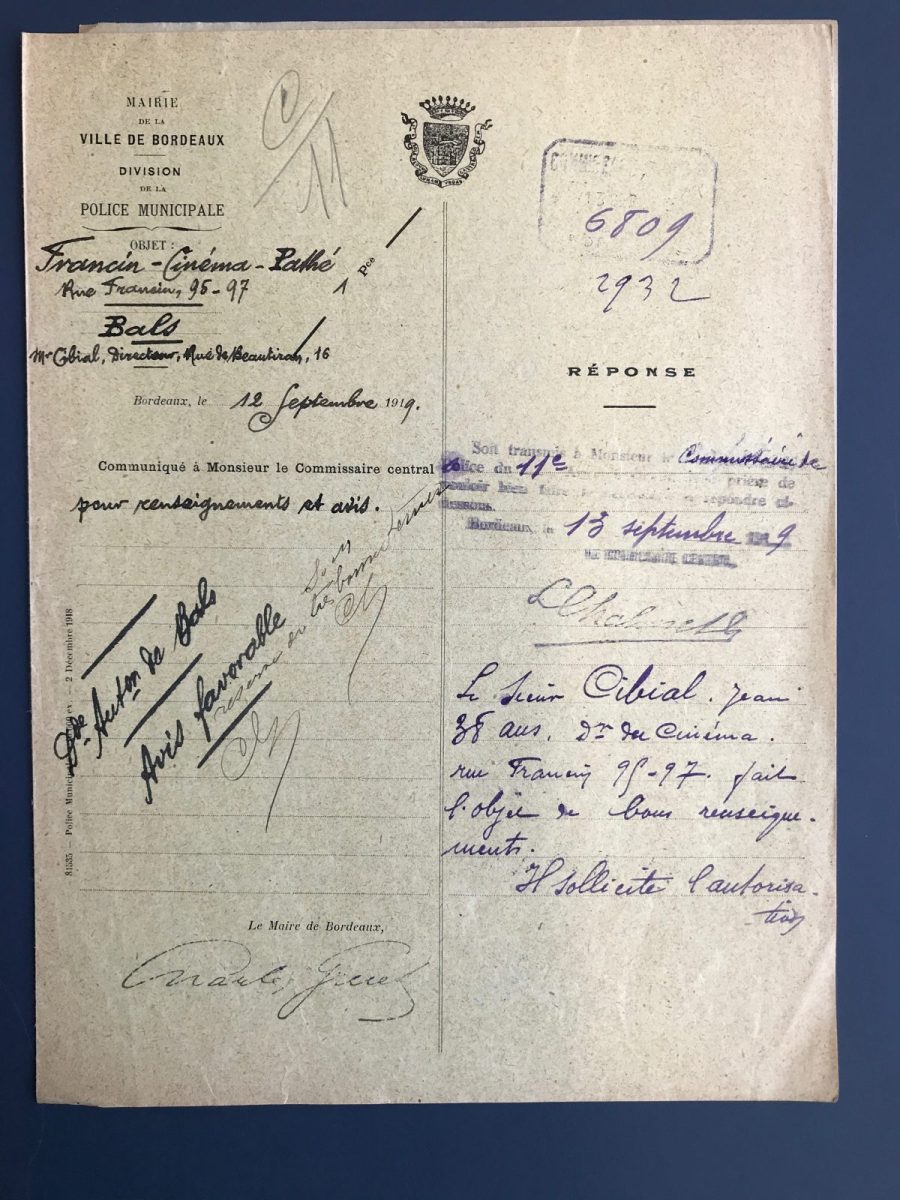 MAIRIE
DE LA
VILLE DE BORDEAUX
DIVISION
DE LA
POLICE MUNICIPALE
OBJET :
Francin-Cinéma-Pathé
Rue Francin, 95-97
1 Pce
Bals
Mr Cibial, Directeur, Rue de Beautiran, 16
Bordeaux, le 12 Septembre 1919.
Communiqué à Monsieur le Commissaire central
pour renseignements et avis.
Dde Auton de Bals
Avis favorable
81535 — Police Municipale — 2 Décembre 1918
Le Maire de Bordeaux,
6809
2932
RÉPONSE
Soit transmis à Monsieur le Commissaire de
Police du 11e prière de
vouloir bien faire répondre ci-
dessous.
Bordeaux le 13 septembre 1919
LE COMMISSAIRE CENTRAL
Le sieur Cibial. Jean
38 ans, Dr du Cinéma.
rue Francin 95-97. fait
l'objet de bons renseigne-
ments.
Il sollicite l'autorisa-
tion